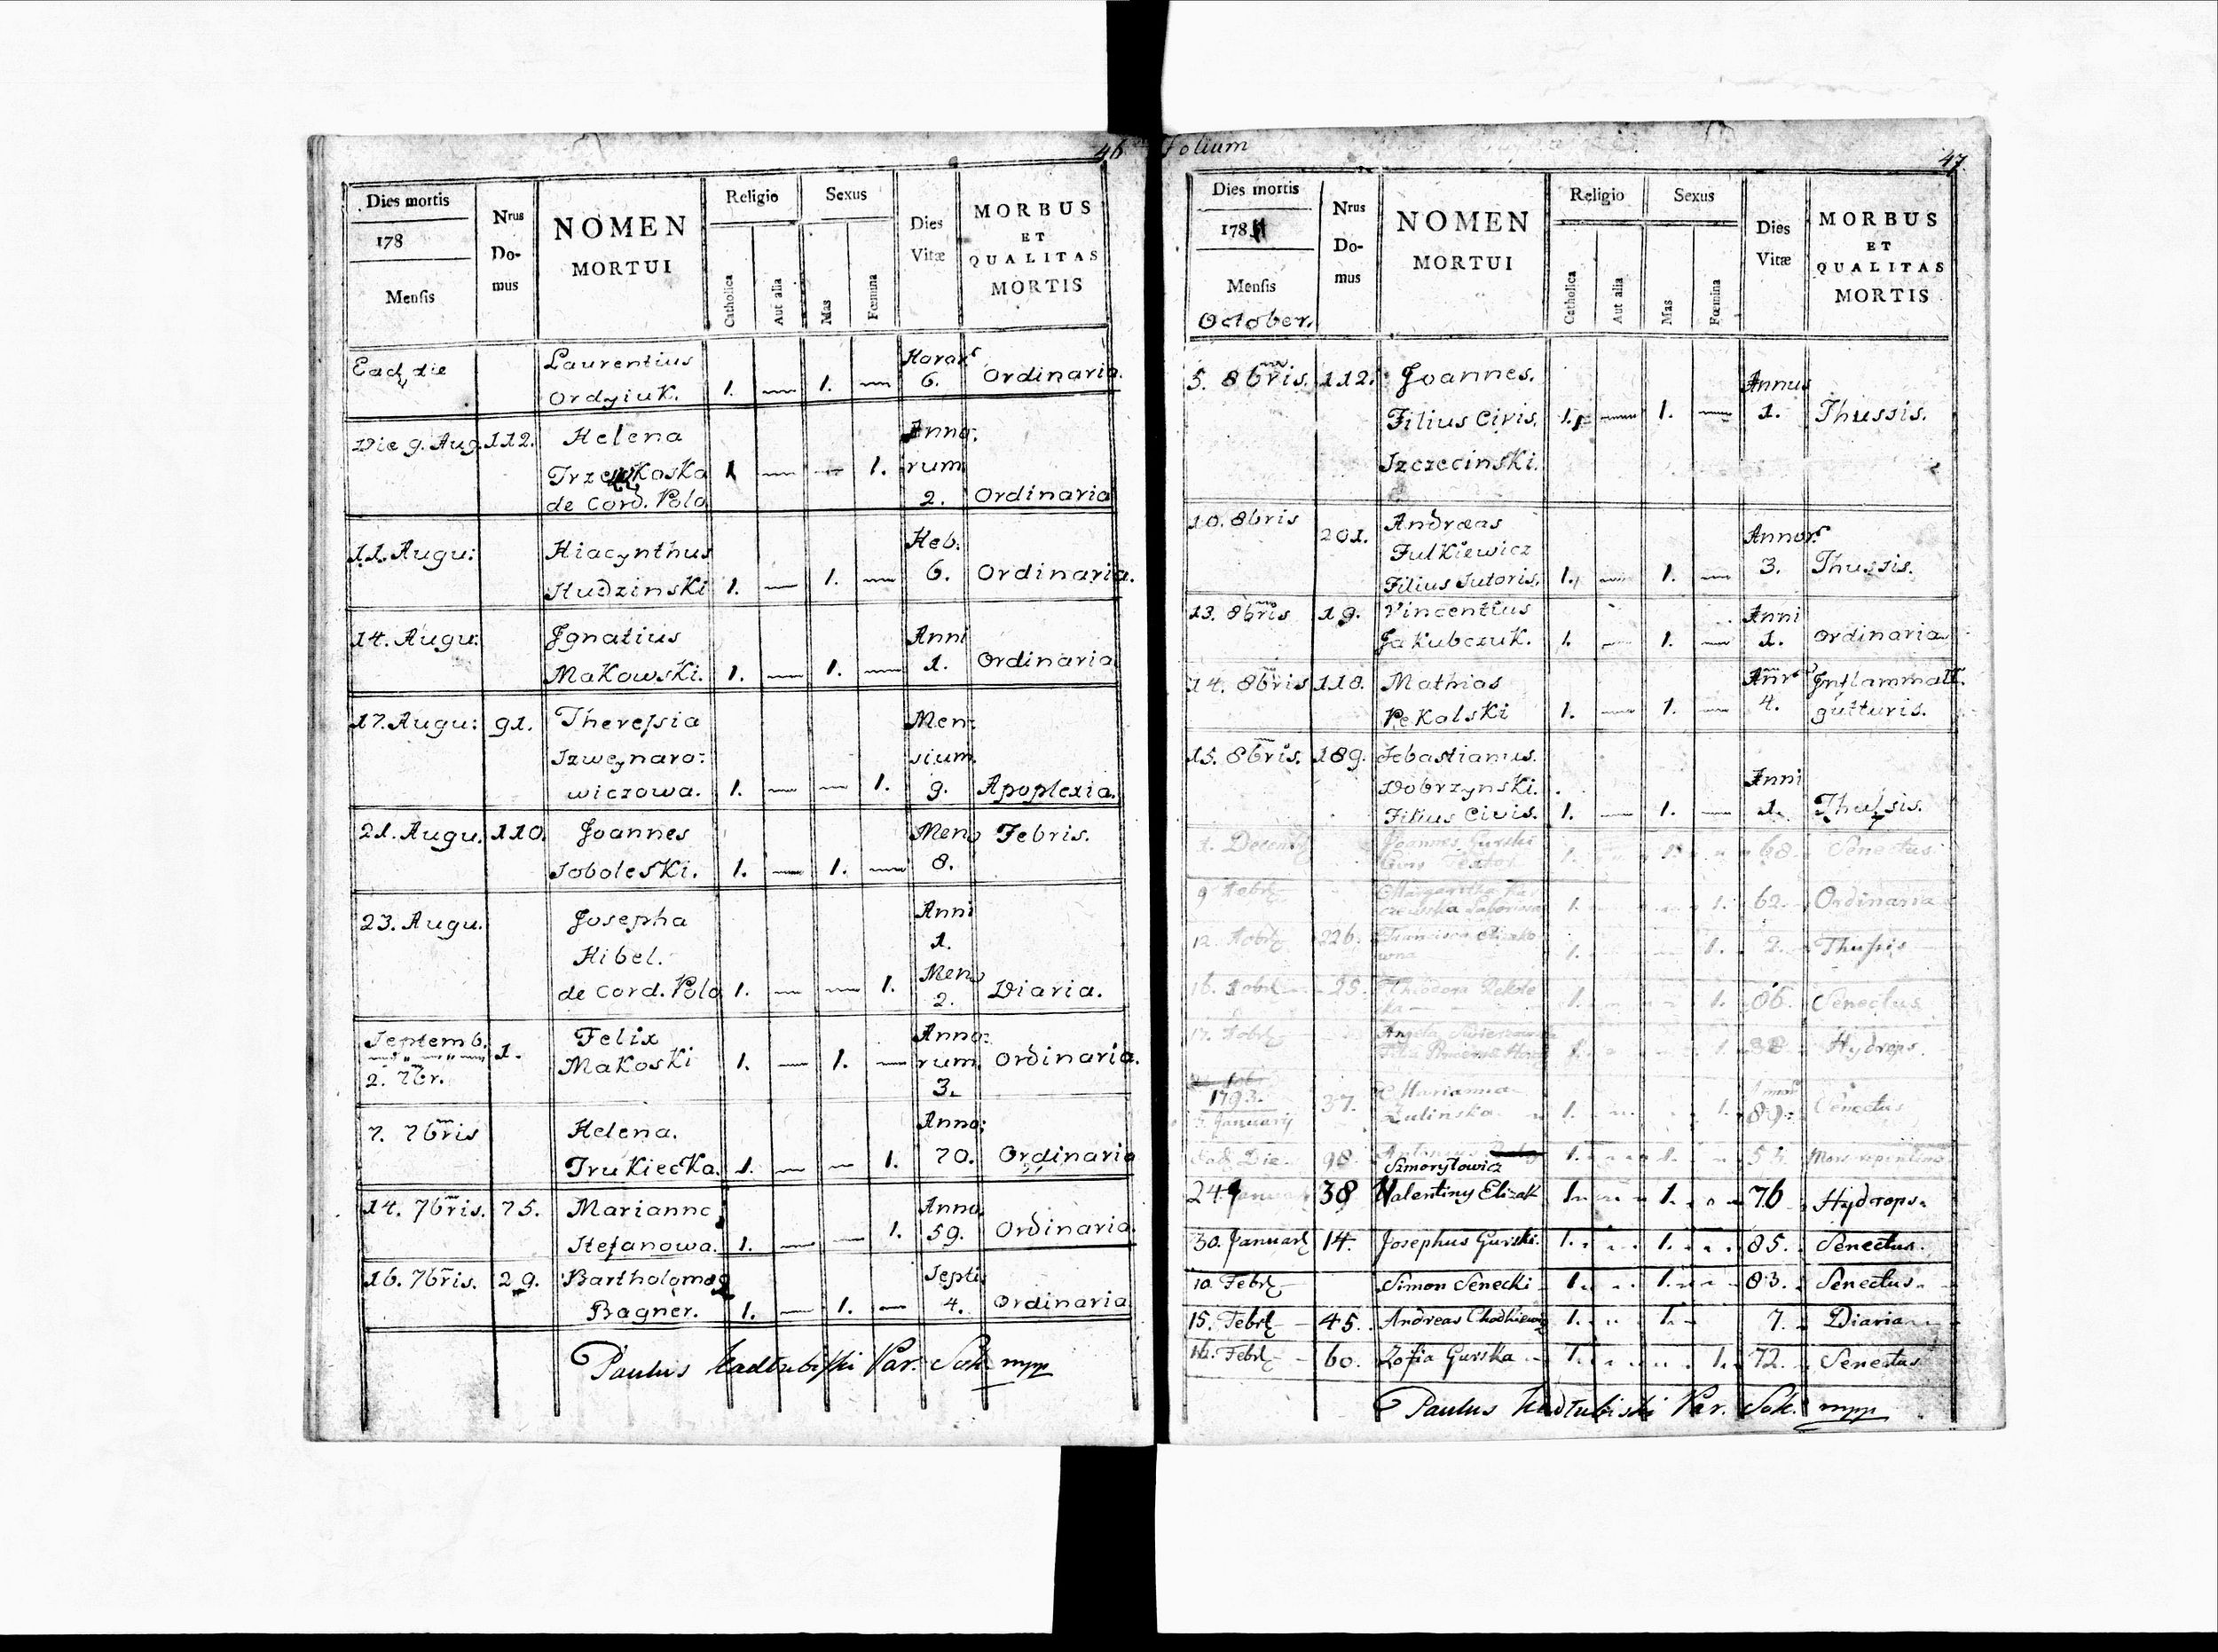 46
Dies mortis
178
Mensis
Nrus
Do-
mus
NOMEN
MORTUI
Religio
Catholica
Aut alia
Sexus
Mas
Fœmina
Dies
Vitæ
MORBUS
ET
QUALITAS
MORTIS
Eadę die Laurentius Horar.
Ordyiuk. 1. — 1. — 6. Ordinaria.
Die 9. Aug. 112. Helena Anno:
1 — — 1. rum
de Cord. Polo 2. Ordinaria
11. Augu: Hiacynthus Heb:
Hudzinski 1. — 1. — 6. Ordinaria.
14. Augu: Jgnatius Anni
Makowski. 1. — 1. — 1. Ordinaria
17. Augu: 91. Theressia Men:
Szweynaro: sium.
wiczowa. 1. — — 1. 9. Apoplexia.
21. Augu. 110. Joannes Mens Febris.
Soboleski. 1. — 1. — 8.
23. Augu. Josepha Anni
Hibel. 1.
Mens
de Cord. Polo 1. — — 1. 2. Diaria.
Septemb. 1. Felix Anno:
Makoski 1. — 1. — rum. Ordinaria.
2. 7br. 3.
7. 7bris Helena. Anno:
Trukiecka. 1. — — 1. 70. Ordinaria
14. 7bris. 75. Marianna Anno.
Stefanowa. 1. — — 1. 59. Ordinaria.
16. 7bris. 29. Bartholomæg Septi.
Bagner. 1. — 1. — 4. Ordinaria
Paulus Kadłubiski Par. Sok. mpp
Folium
47.
Dies mortis
178
Mensis
October.
Nrus
Do-
mus
NOMEN
MORTUI
Religio
Catholica
Aut alia
Sexus
Mas
Fœmina
Dies
Vitæ
MORBUS
ET
QUALITAS
MORTIS
5. 8bris. 112. Joannes. Annus
Filius Civis. 1. — 1. — 1. Thussis.
Szczecinski.
10. 8bris 201. Andræas Annor.
Fulkiewicz
Filius Sutoris. 1. — 1. — 3. Thussis.
13. 8bris 19. Vincentius Anni
Jakubczuk. 1. — 1. — 1. Ordinaria.
14. 8bris 118. Mathias Anr. Jnflammatt.
Pekalski 1. — 1. — 4. gutturis.
15. 8bris. 189. Sebastianus.
Dobrzynski. Anni
Filius Civis. 1. — 1. — 1. Thussis.
1. Decemb Joannes Gurski
1. 1. 68. Senectus
9 Margaritha
1. 1. 62. Ordinaria
12. 226. Francisca
1. 1. 2. Thussis
16. 25. Theodora
1. 1. 86. Senectus
17. Angela
1. 1. Hydrops.
1793. 37. Marianna
Zulinska 1. 1. 89. Senectus
Januarij
Ead. Die 98. Antonius
Szmorytowicz 1. 1. Mors repentina
24. Januar 38 Valentiny Elizak 1. 1. 76 Hydrops.
30. Januarę 14. Josephus Gurski. 1. 1. 85. Senectus.
10. Febrę Simon Senecki 1. 1. 83. Senectus.
15. Febrę 45. Andreas Chodkiewicz 1. 1. 7. Diaria
16. Febrę 60. Zofia Gurska 1. 1. 72. Senectus
Paulus Kadłubiski Par. Sok. mpp